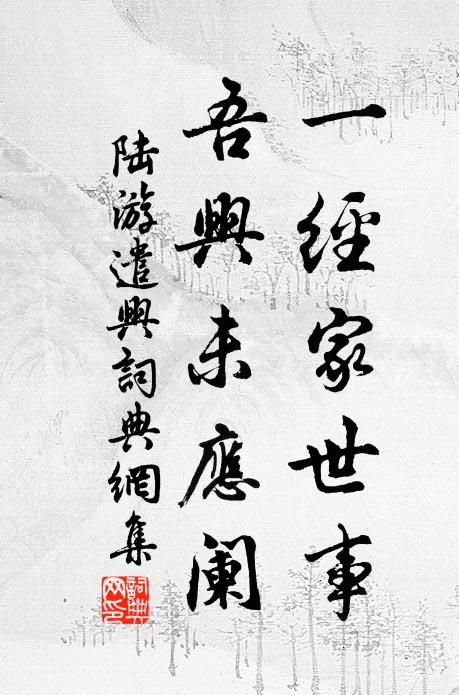 一經家世事
吾興未應阑
陆游遣興詞典網集
詞典